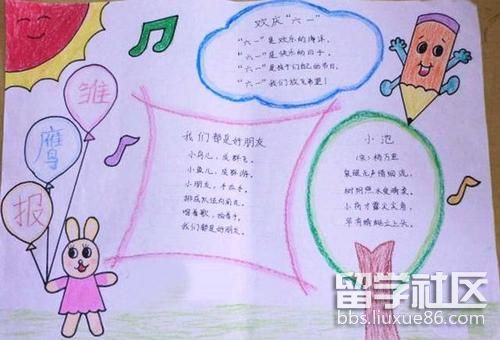 雏
鹰
报
欢庆“六一”
“六一”是欢乐的海洋。
“六一”是快乐的日子。
“六一”是孩子们自己的节日。
“六一”我们放飞希望!
我们都是好朋友
小鸟儿,成群飞。
小鱼儿,成群游。
小朋友,手拉手。
排成队伍向前走。
唱着歌,拍着手。
我们都是好朋友。
小池
(宋)杨万里
泉眼无声惜细流,
树阴照水爱晴柔。
小荷才露尖尖角,
早有蜻蜓立上头。
留学社区
bbs.liuxue86.com